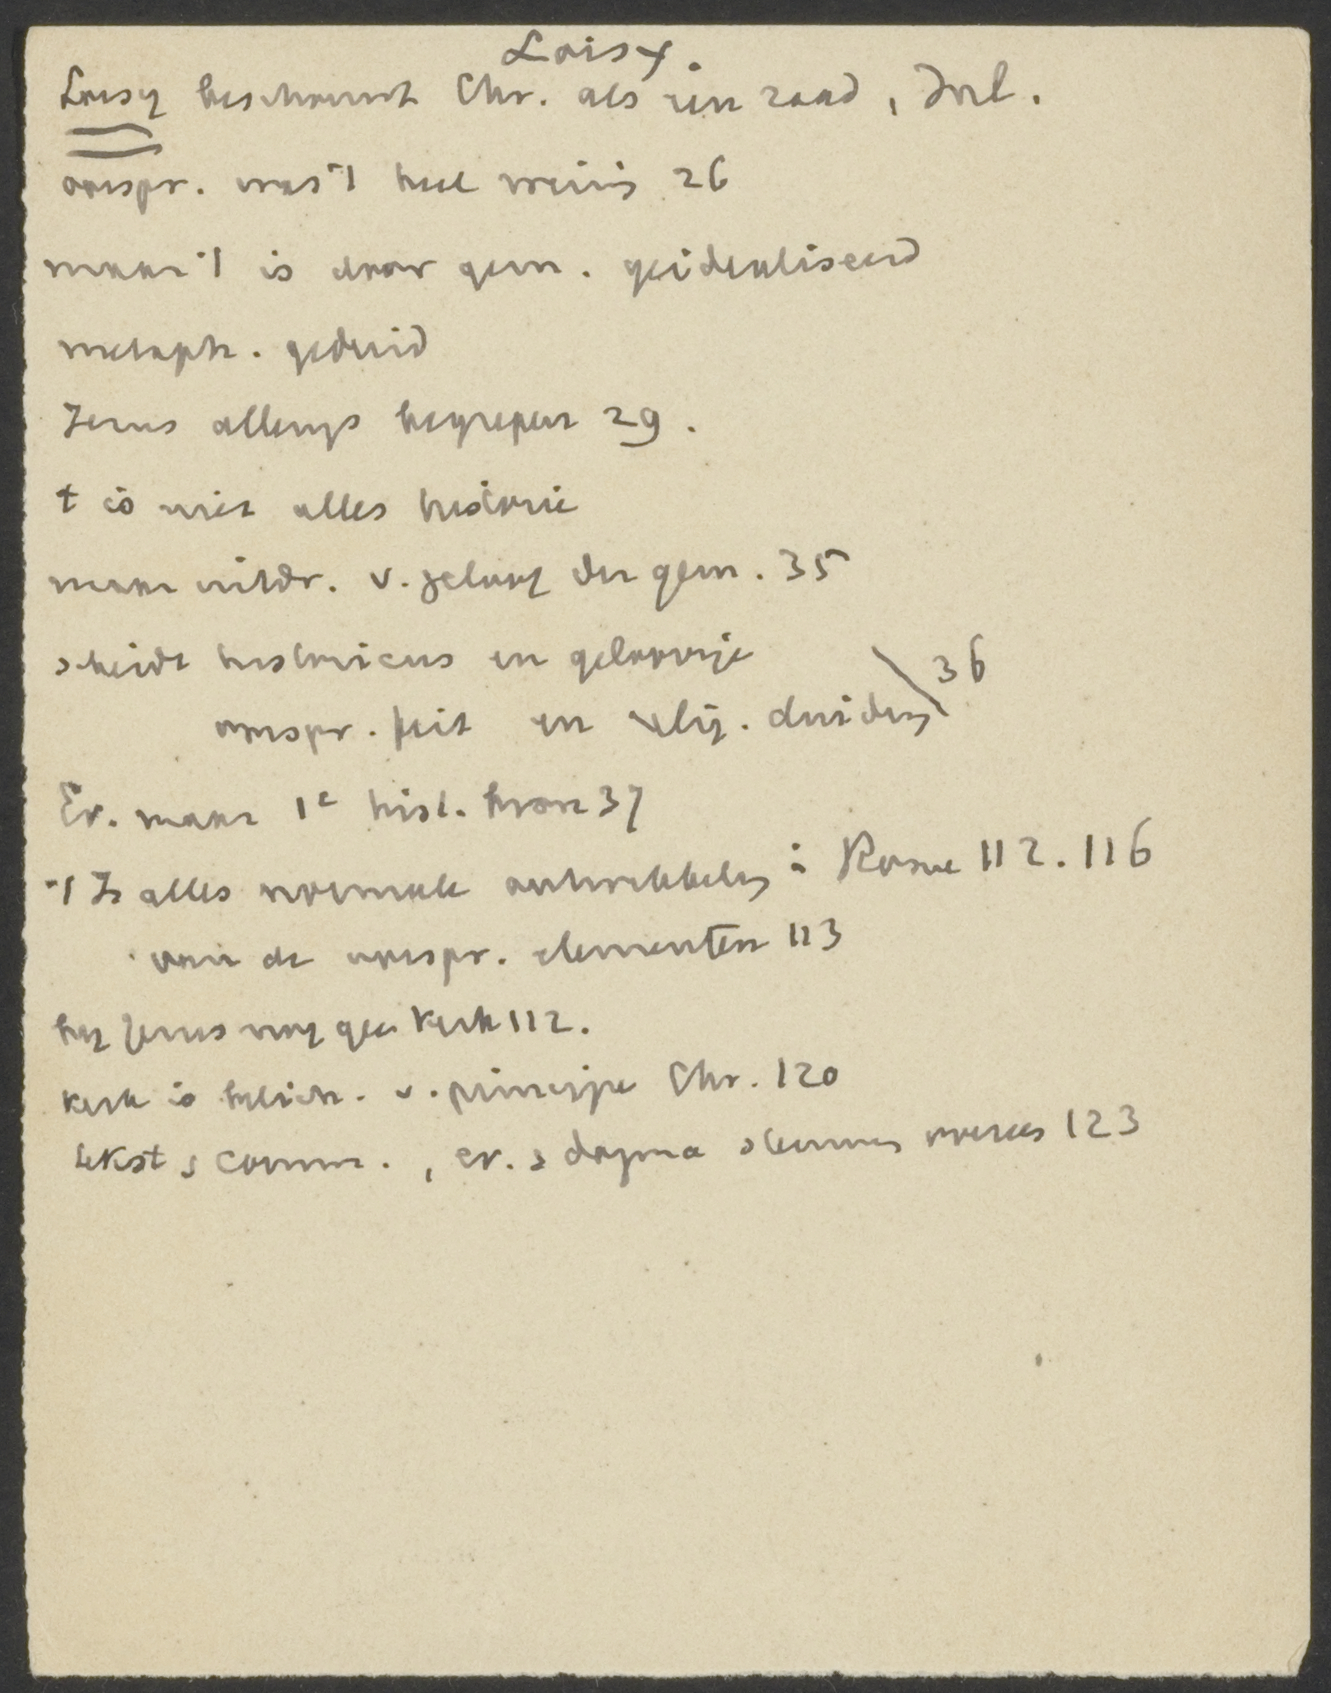 Loisy.
Loisy beschouwt Chr. als een zaad, Inl.
oorspr. was 't heel weinig 26
maar 't is door gem. geidealiseerd
metaph. geduid
Jezus allengs begrepen 29.
t is niet alles historie
maar uitdr. v. geloof der gem. 35
scheidt historicus en geloovige
oorspr. feit en relig. duiding 36
Ev. maar 1e hist. bron 37
't Is alles normale ontwikkeling : Rome 112. 116
van de oorspr. elementen 113
bij Jezus nog geen Kerk 112.
Kerk is belich. v. principe Chr. 120
tekst & comm., ev. & dogma stemmen overeen 123